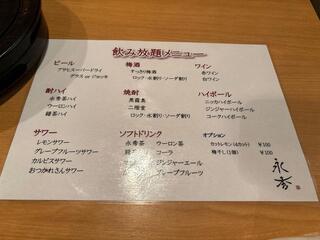 飲み放題メニュー
ビール
アサヒスーパードライ
グラス or ジョッキ
梅酒
すっきり梅酒
ロック・水割り・ソーダ割り
ワイン
赤ワイン
白ワイン
酎ハイ
永秀茶ハイ
ウーロンハイ
緑茶ハイ
焼酎
黒霧島
二階堂
ロック・水割り・ソーダ割り
ハイボール
ニッカハイボール
ジンジャーハイボール
コークハイボール
サワー
レモンサワー
グレープフルーツサワー
カルピスサワー
おつかれさんサワー
ソフトドリンク
永秀茶 ウーロン茶
コーラ
ジンジャーエール
グレープフルーツ
オプション
カットレモン(4カット) ¥100
梅干し(1個) ¥100
永秀